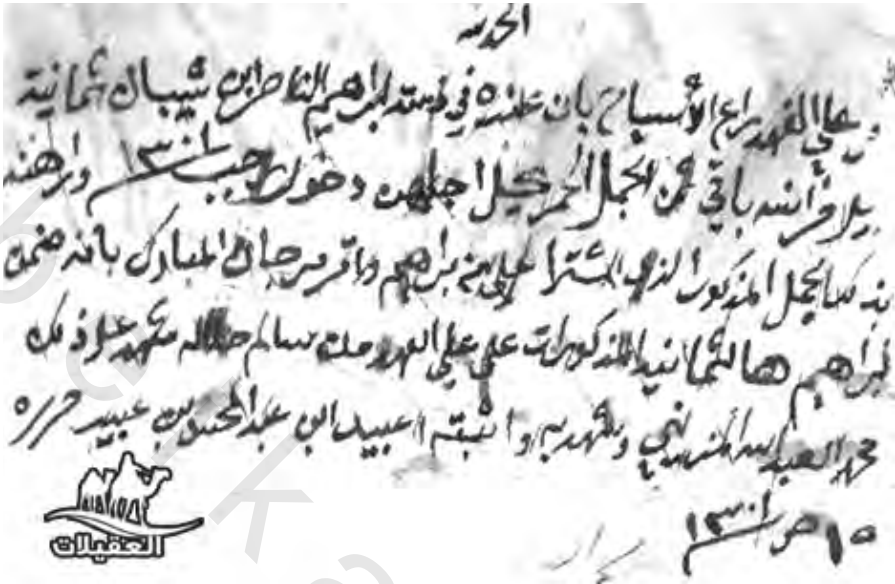 الحمد لله
علي الفهد راع الأسياح بان عنده في ذمته لبراهيم الناصر ابن شيبان ثمانية
باقي ثمن الجمل الحمر كيل اجلهن دخول رجب ١٣٠١ وارهنه
بذ الجمل المذكور الذي اشترا علي من براهيم واقر مرجان المبارك بانه ضمن
لبراهيم هالثمانيه المذكورات على علي الفهد من سالم حلاله شهد على ذلك
محمد العبدالله وشهد به واثبته عبيد ابن عبدالمحسن بن عبيد حرره
١٥ ص ١٣٠١
العقيلات